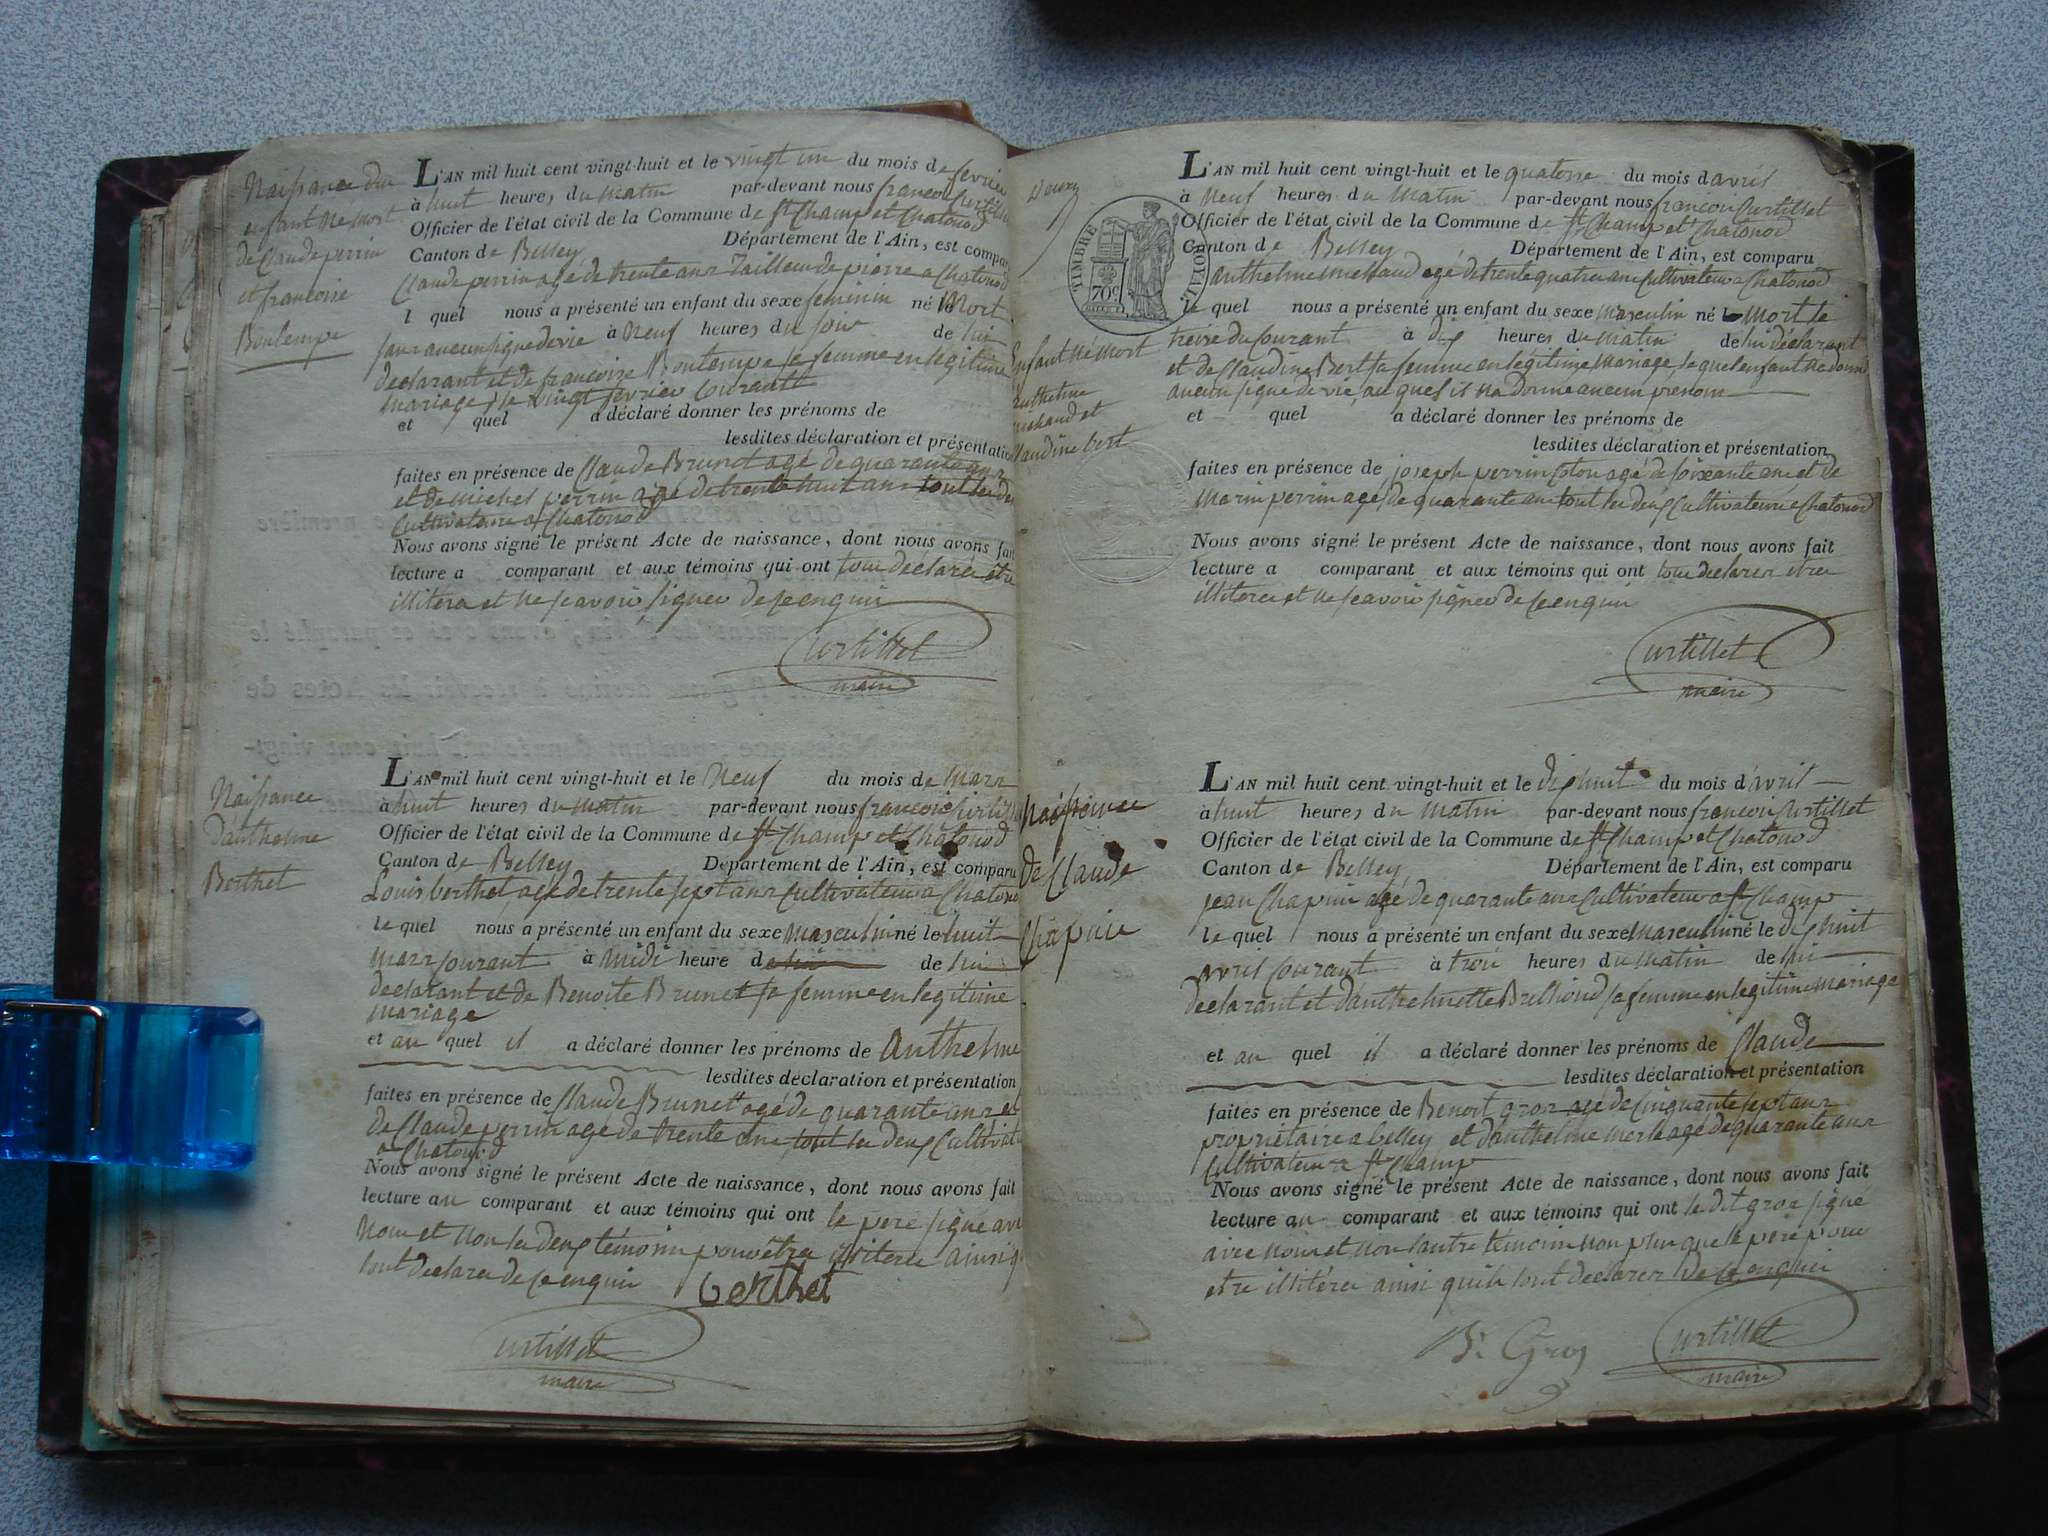 Naissance d'un
enfant né mort
de Claude perrin
et francoise
Bontemps
L'AN mil huit cent vingt-huit et le vingt un du mois de fevrier
à huit heures du matin par-devant nous francois Curtillet
Officier de l'état civil de la Commune de St Champ et Chatonod
Canton de Belley Département de l'Ain, est compar
Claude perrin agé de trente ans Tailleur de pierre a Chatonod
l quel nous a présenté un enfant du sexe feminin né le Mort
sans aucun signe de vie à Neuf heures du soir de lui
declarant et de francoise Bontemps sa femme en legitime
mariage, le vingt fevrier Courant
et quel a déclaré donner les prénoms de
lesdites déclaration et présentation
faites en présence de Claude Brunet agé de quarante ans
et de michel perrin agé de trente huit ans tout les de
Cultivateurs a Chatonod
Nous avons signé le présent Acte de naissance, dont nous avons fait
lecture a comparant et aux témoins qui ont tous déclarés être
illitera et ne scavoir signer de ce enquis
Curtillet
maire
Naissance
d'anthelme
Berthet
L'AN mil huit cent vingt-huit et le Neuf du mois de Mars
à huit heures du matin par-devant nous francois Curtillet
Officier de l'état civil de la Commune de St Champ et Chatonod
Canton de Belley Département de l'Ain, est comparu
Louis berthet agé de trente sept ans Cultivateur a Chatonod
le quel nous a présenté un enfant du sexe Masculin né le huit
mars courant à midi heure d de lui
declarant et de Benoite Brunet sa femme en legitime
mariage
et au quel il a déclaré donner les prénoms de Anthelme
lesdites déclaration et présentation
faites en présence de Claude Brunet agé de quarante ans et
de Claude perrin agé de trente ans tout les deux Cultivat
a Chatonod
Nous avons signé le présent Acte de naissance, dont nous avons fait
lecture au comparant et aux témoins qui ont le pere signé avec
Nous et Non les deux témoins pour être illiterer ainsi q
sont declarer de ce enquis
berthet
Curtillet
maire
Deux
TIMBRE ROYAL
70c
Enfant né mort
anthelme
michaud et
Claudine bert
L'AN mil huit cent vingt-huit et le quatorse du mois d avril
à Neuf heures du Matin par-devant nous francois Curtillet
Officier de l'état civil de la Commune de St Champ et Chatonod
Canton de Belley Département de l'Ain, est comparu
anthelme michaud agé de trente quatre ans Cultivateur a Chatonod
le quel nous a présenté un enfant du sexe Masculin né le mort le
treise du Courant à dix heures du Matin de lui déclarant
et de Claudine Bert sa femme en légitime Mariage, le quel enfant na donné
aucun signe de vie, auquel il na Donné aucun prenom
et quel a déclaré donner les prénoms de
lesdites déclaration et présentation
faites en présence de joseph perrin Coton agé de soixante ans et de
Marin perrin agé de quarante ans tout les deux Cultivateurs a Chatonod
Nous avons signé le présent Acte de naissance, dont nous avons fait
lecture a comparant et aux témoins qui ont tous declarer etre
illiterer et ne scavoir signer de ce enquis
Curtillet
maire
Naissance
De Claude
Chapuis
L'AN mil huit cent vingt-huit et le dix huit du mois d'avril
à huit heures du Matin par-devant nous francois Curtillet
Officier de l'état civil de la Commune de St Champ et Chatonod
Canton de Belley Département de l'Ain, est comparu
jean Chapuis agé de quarante ans Cultivateur a St Champ
le quel nous a présenté un enfant du sexe Masculin né le dix huit
avril courant à trois heures du matin de lui
declarant et d'anthelmette Brilliond sa femme en legitime mariage
et au quel il a déclaré donner les prénoms de Claude
lesdites déclaration et présentation
faites en présence de Benoit gros agé de cinquante sept ans
propriétaire a belley et d'anthelme merle agé de quarante ans
Cultivateur a St Champ
Nous avons signé le présent Acte de naissance, dont nous avons fait
lecture au comparant et aux témoins qui ont le dit gros signé
avec nous et non l'autre témoin non plus que le pere pour
etre illitérer ainsi quils sont declarer de ce enquis
B. Gros
Curtillet
maire